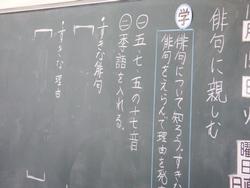 俳句に親しむ
学
俳句について知ろう。すきな
俳句をえらんで理由を
㊀五七五の十七音
㊀季語を入れる。
・すきな俳句
・すきな理由
曜日